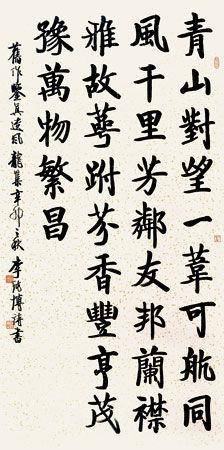 青山對望一葦可航同
風千里芳鄰友邦蘭襟
雅故萼跗芬香豐亨茂
豫萬物繁昌
舊作鑒真逵風龍集辛卯之秋李海博詩書